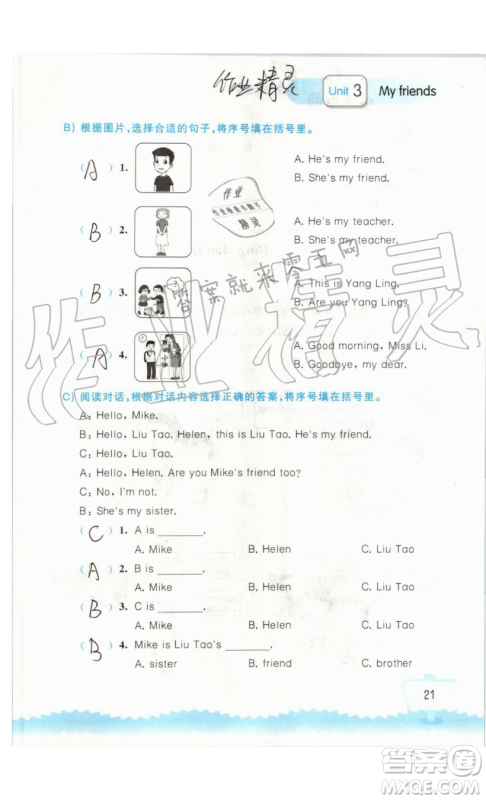 作业精灵
Unit 3 My friends
B) 根据图片,选择合适的句子,将序号填在括号里。
( A ) 1. A. He's my friend.
B. She's my friend.
作业
精灵
( B ) 2. A. He's my teacher.
B. She's my teacher.
( B ) 3. A. This is Yang Ling.
B. Are you Yang Ling?
答案就来零五网
作业精灵
( A ) 4. A. Good morning, Miss Li.
B. Goodbye, my dear.
C) 阅读对话,根据对话内容选择正确的答案,将序号填在括号里。
A: Hello, Mike.
B: Hello, Liu Tao. Helen, this is Liu Tao.
C: Hello, Liu Tao.
A: Hello, Helen. Are you Mike's friend too?
C: No, I'm not.
B: She's my sister.
( C ) 1. A is ______.
A. Mike B. Helen C. Liu Tao
( A ) 2. B is ______.
A. Mike B. Helen C. Liu Tao
( B ) 3. C is ______.
A. Mike B. Helen C. Liu Tao
( B ) 4. Mike is Liu Tao's ______.
A. sister B. friend C. brother
21
答案圈
MXQE.COM